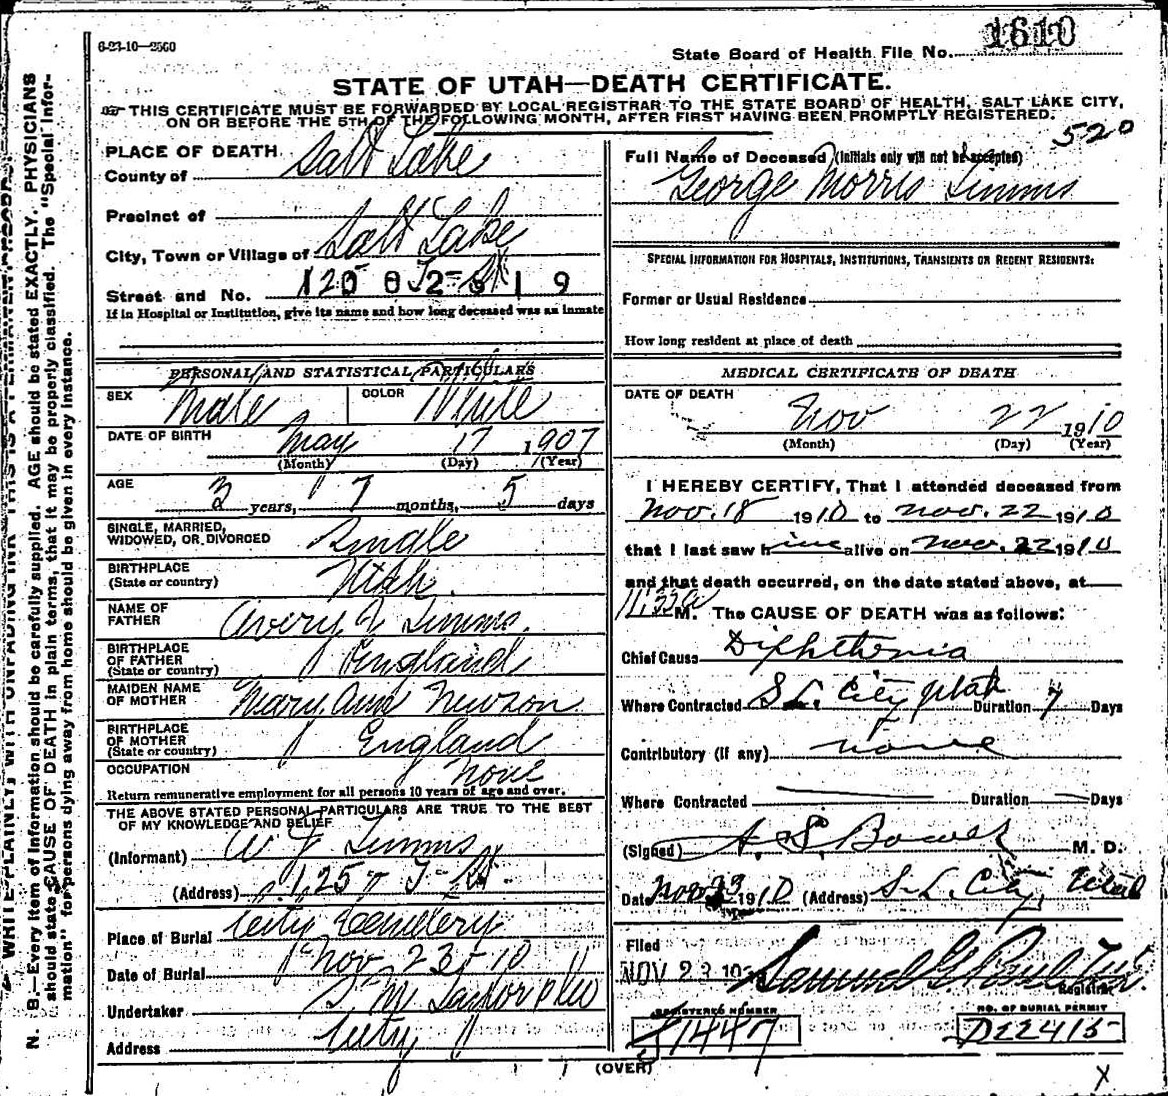 6-23-10-2500
State Board of Health File No. 1610
STATE OF UTAH—DEATH CERTIFICATE.
THIS CERTIFICATE MUST BE FORWARDED BY LOCAL REGISTRAR TO THE STATE BOARD OF HEALTH, SALT LAKE CITY,
ON OR BEFORE THE 5TH OF THE FOLLOWING MONTH, AFTER FIRST HAVING BEEN PROMPTLY REGISTERED.
520
PLACE OF DEATH
County of Salt Lake
Precinct of
City, Town or Village of Salt Lake
Street and No. 125
If in Hospital or Institution, give its name and how long deceased was an inmate
PERSONAL AND STATISTICAL PARTICULARS
SEX Male COLOR White
DATE OF BIRTH May 17 1907
(Month) (Day) (Year)
AGE 3 years, 7 months, 5 days
SINGLE, MARRIED,
WIDOWED, OR DIVORCED Single
BIRTHPLACE
(State or country) Utah.
NAME OF
FATHER Avery J Timms.
BIRTHPLACE
OF FATHER
(State or country) England
MAIDEN NAME
OF MOTHER Mary Ann Newson
BIRTHPLACE
OF MOTHER
(State or country) England
OCCUPATION None
Return remunerative employment for all persons 10 years of age and over.
THE ABOVE STATED PERSONAL PARTICULARS ARE TRUE TO THE BEST
OF MY KNOWLEDGE AND BELIEF
(Informant) A J Timms
(Address) 125 7 J St.
Place of Burial City Cemetery
Date of Burial Nov 23 10
Undertaker S M Taylor & Co
Address City
Full Name of Deceased (Initials only will not be accepted)
George Morris Timms
SPECIAL INFORMATION FOR HOSPITALS, INSTITUTIONS, TRANSIENTS OR RECENT RESIDENTS:
Former or Usual Residence
How long resident at place of death
MEDICAL CERTIFICATE OF DEATH
DATE OF DEATH
Nov 22 1910
(Month) (Day) (Year)
I HEREBY CERTIFY, That I attended deceased from
Nov. 18 1910 to Nov. 22 1910
that I last saw him alive on Nov. 22 1910
and that death occurred, on the date stated above, at
M. The CAUSE OF DEATH was as follows:
Chief Cause Diphtheria
Where Contracted S L City Utah Duration 7 Days
Contributory (if any) none
Where Contracted Duration Days
(Signed) A. S. Bower M. D.
Date Nov 23 1910 (Address) S. L. City, Utah
Filed
NOV 23 Samuel G Paul
Registrar
REGISTERED NUMBER
S1447
NO. OF BURIAL PERMIT
D22415
(OVER)
X
WRITE PLAINLY, WITH UNFADING INK—THIS IS A PERMANENT RECORD.
N. B.—Every item of information should be carefully supplied. AGE should be stated EXACTLY. PHYSICIANS
should state CAUSE OF DEATH in plain terms, that it may be properly classified. The "Special Infor-
mation" for persons dying away from home should be given in every instance.